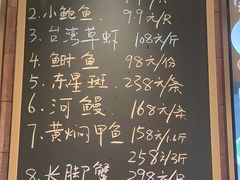 2. 小鲍鱼 9.9元/只
3. 台湾草虾 108元/斤
4. 鲥鱼 98元/份
5. 东星斑 238元/条
6. 河鳗 168元/条
7. 黄焖甲鱼 158元/1.6斤
258元/3斤
8. 长脚蟹 298元/只